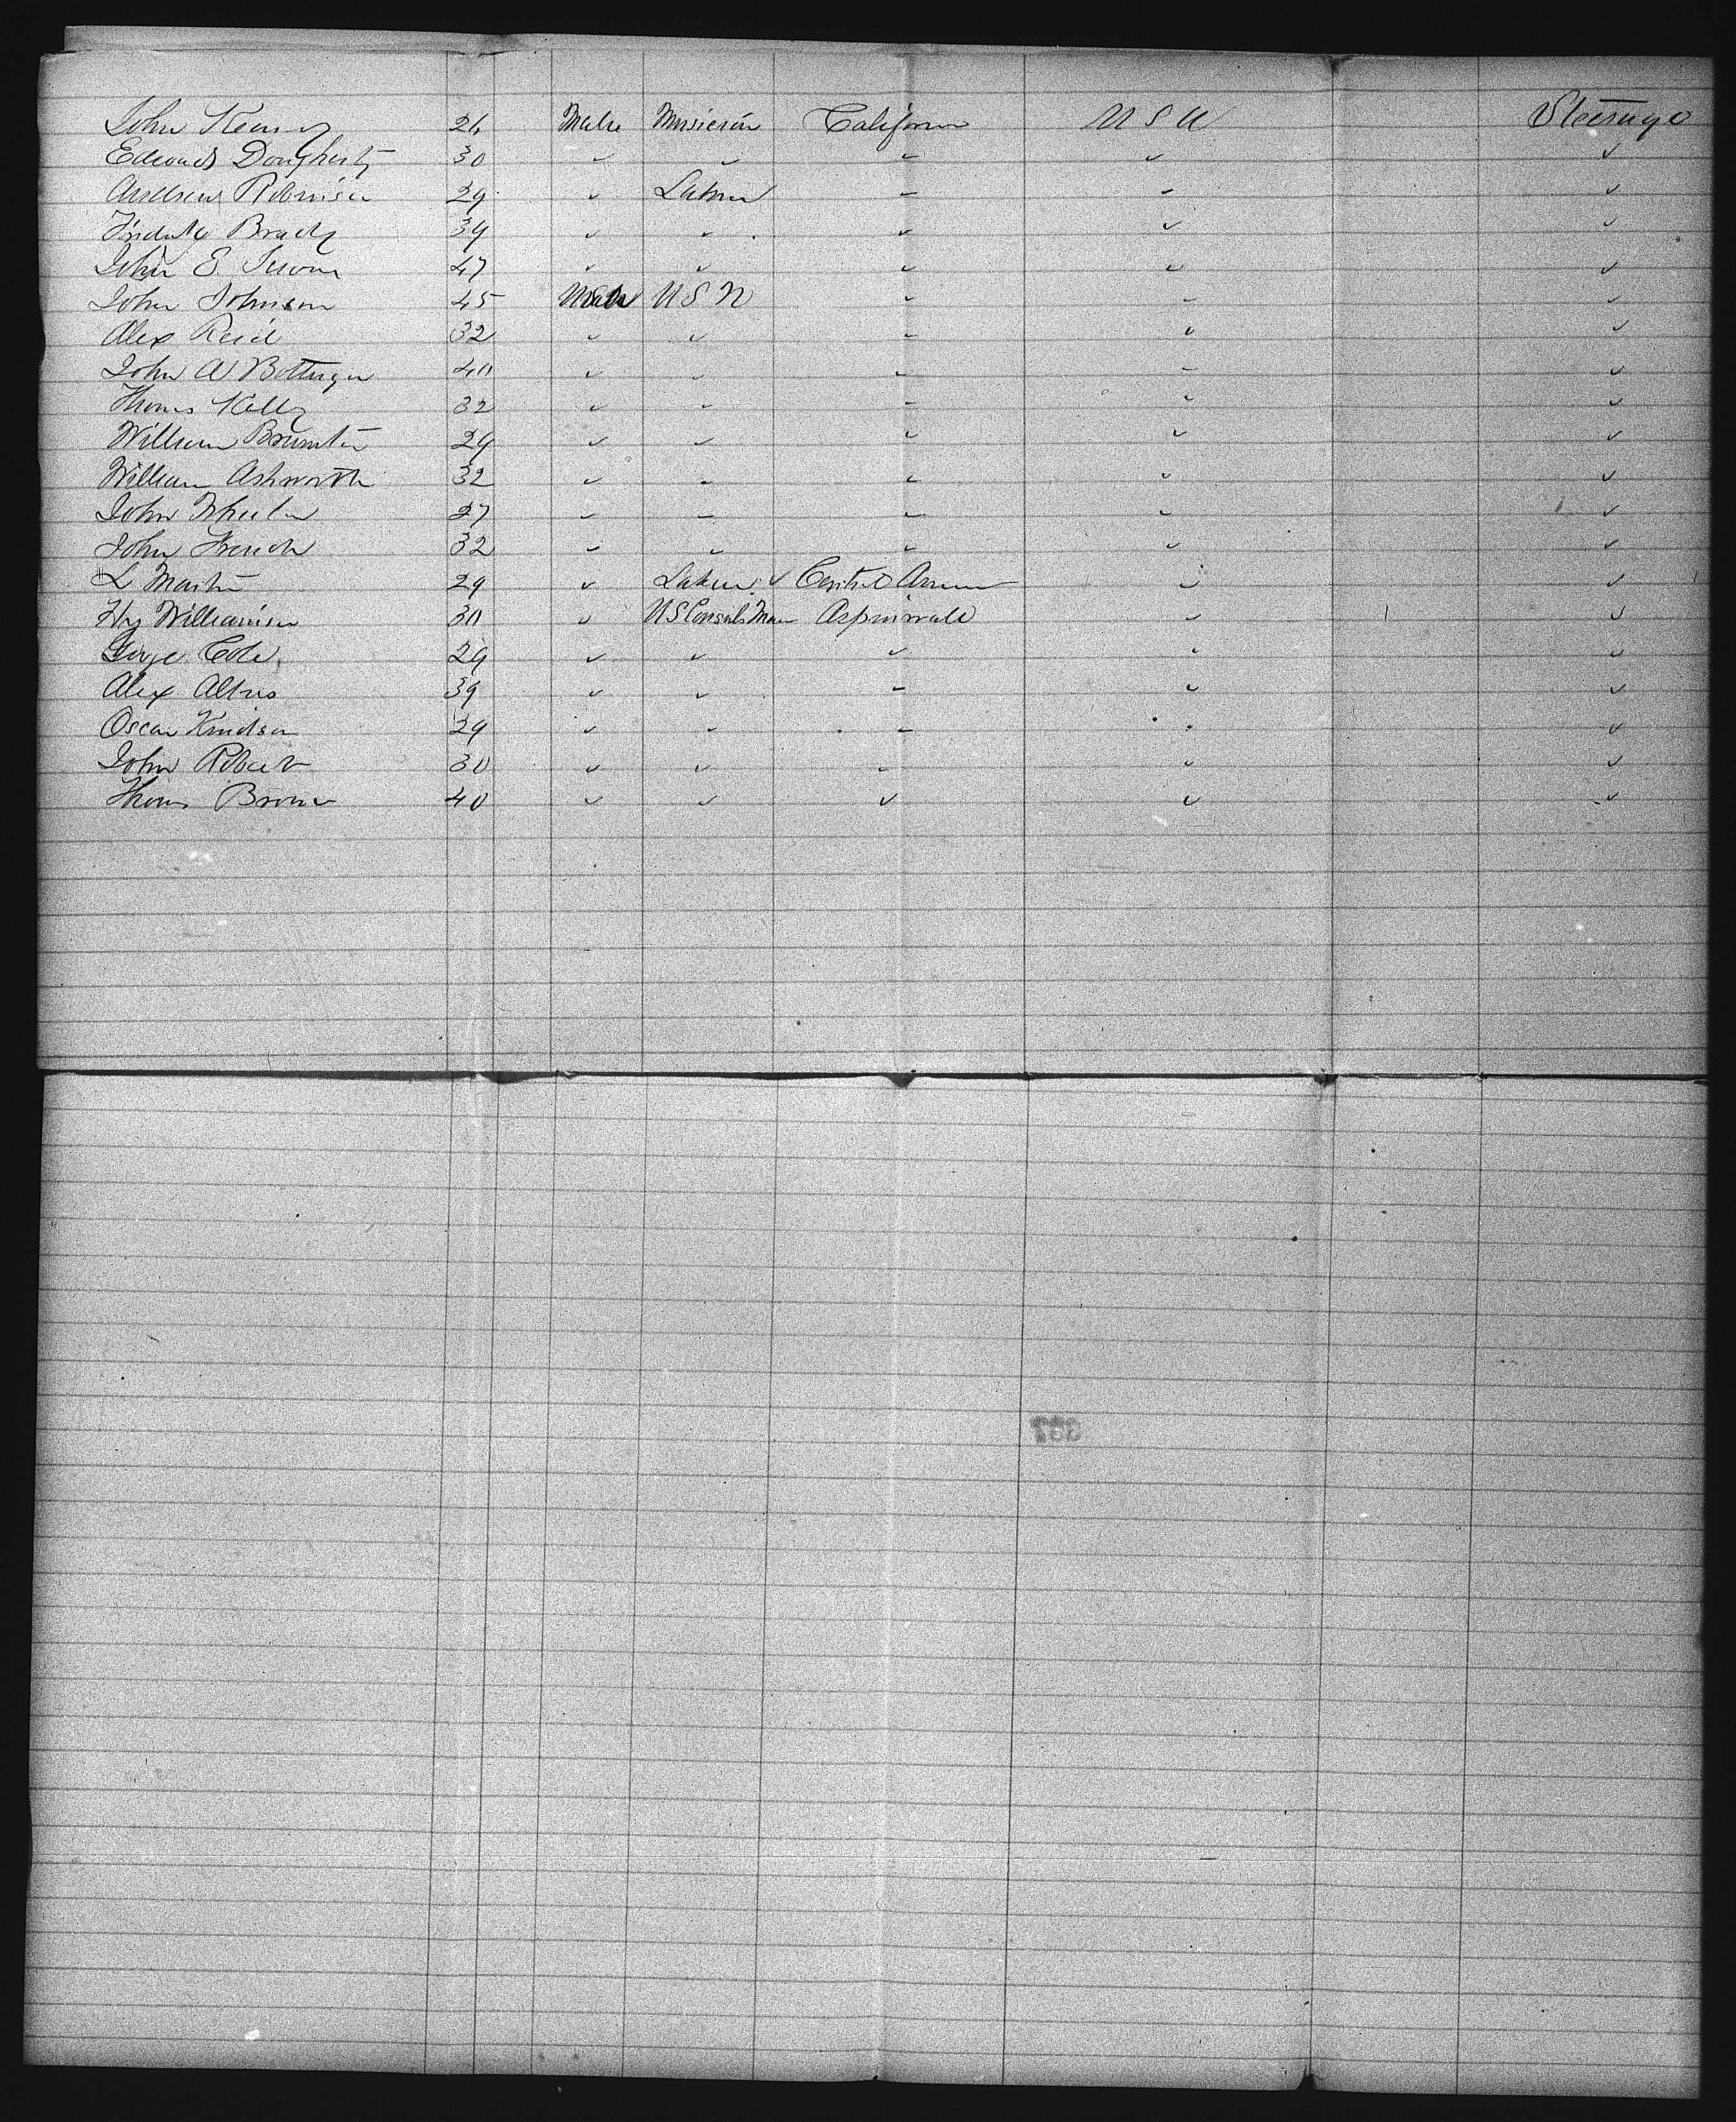 John Kearney 26 Male Musician California U S A Steerage
Edward Dougherty 30 ✓ ✓ ✓ ✓ ✓
Andrew Robinson 29 ✓ Labour – – ✓
Brady 39 ✓ ✓ ✓ ✓ ✓
John E 47 ✓ ✓ ✓ ✓ ✓
John Johnson 45 Male U S N ✓ – ✓
Alex Reid 32 ✓ ✓ – ✓ ✓
John A Bottinger 40 ✓ ✓ – – ✓
Thomas Kelly 32 ✓ ✓ – ✓ ✓
William 29 ✓ ✓ ✓ ✓ ✓
William Ashworth 32 ✓ – ✓ ✓ ✓
John Wheeler 27 – – – ✓ ✓
John French 32 – – – ✓ ✓
L Martin 29 ✓ Labour ✓ Central Amer ✓ ✓
Hy Williamson 30 ✓ U S Consuls Man Aspinwall ✓ ✓
George Cole 29 ✓ ✓ ✓ ✓ ✓
Alex 39 ✓ ✓ – ✓ ✓
Oscar Knudson 29 ✓ ✓ – ✓ ✓
John Robert 30 ✓ ✓ – ✓ ✓
Thomas Brown 40 ✓ ✓ ✓ ✓ ✓